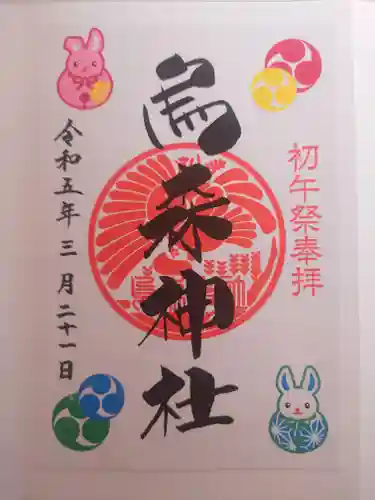 初午祭奉拝
烏森神社
令和五年三月二十一日